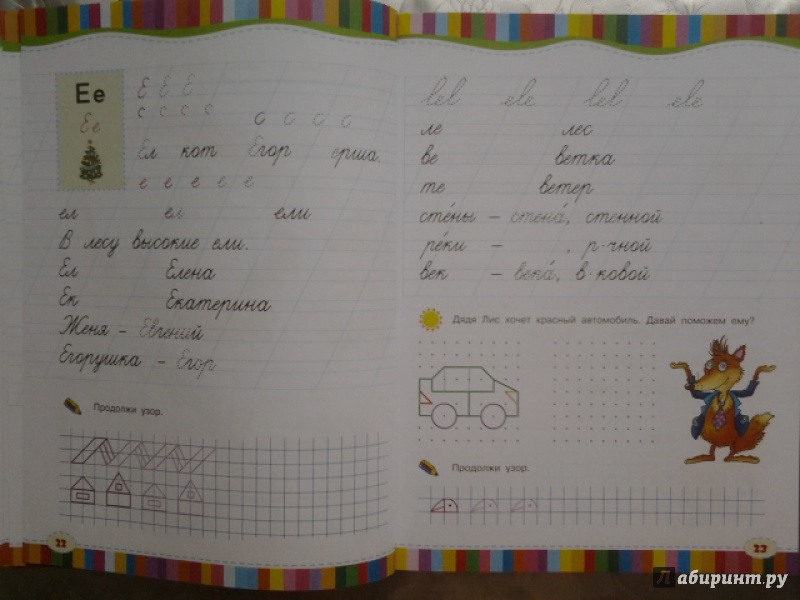 Ее Е Е Е
с с с с с с с с
Ее
Ел кот Егор ерша.
е е е е е
ел ел ели
В лесу высокие ели.
Ел Елена
Ек Екатерина
Женя – Евгений
Егорушка – Егор
Продолжи узор.
22
lel ele lel ele
ле лес
ве ветка
те ветер
сте́ны – стена́, стенной
ре́ки – , р·чной
век – века́, в·ковой
Дядя Лис хочет красный автомобиль. Давай поможем ему?
Продолжи узор.
23
Лабиринт.ру